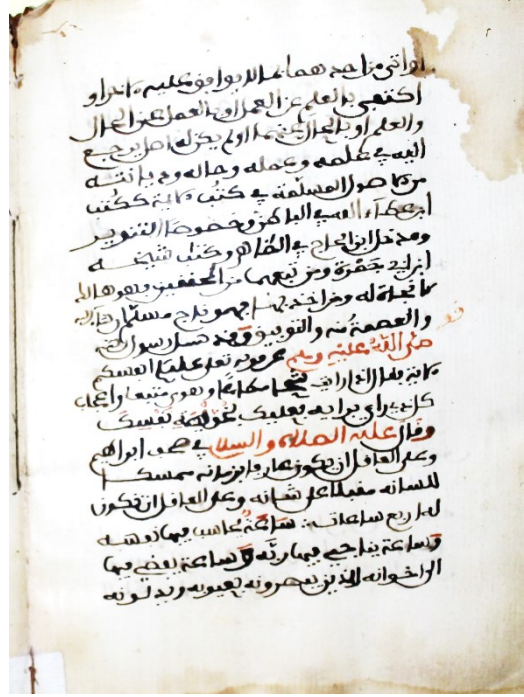 اواتى من احدهما بما لا يوافق عليه
اكتفى بالعلم عن العمل او بالعمل عن الحال
والعلم او بالحال عنهما او لم يكن له اصل يرجع
اليه في علمه وعمله وحاله وديانته
من الاصول المسلمة في كتب الاية ككتب
ابن عطاء الله في الباطن وخصوصا التنوير
ومدخل ابن الحاج في الظاهر وكتاب شيخه
ابن ابي جمرة ومن تبعهما من المحققين فهو هالك
لا نجاة له ومن اخذ بهما فهو ناج مسلم ان شا الله
والعصمة منه والتوفيق وقد سئل رسول الله
صلى الله عليه وسلم عن قوله تعالى عليكم انفسكم
الاية فقال اذا رايت شحا مطاعا وهوى متبعا واعجاب
كل ذي راي برايه فعليك بخويصة نفسك
وقال عليه الصلاة والسلام في صحف ابراهيم
وعلى العاقل ان يكون عارفا بزمانه ممسكا
للسانه مقبلا على شانه وعلى العاقل ان تكون
له اربع ساعات ساعة يحاسب فيها نفسه
وساعة يناجي فيها ربه وساعة يفضي فيها
الى اخوانه الذين يبصرونه بعيوبه ويدلونه